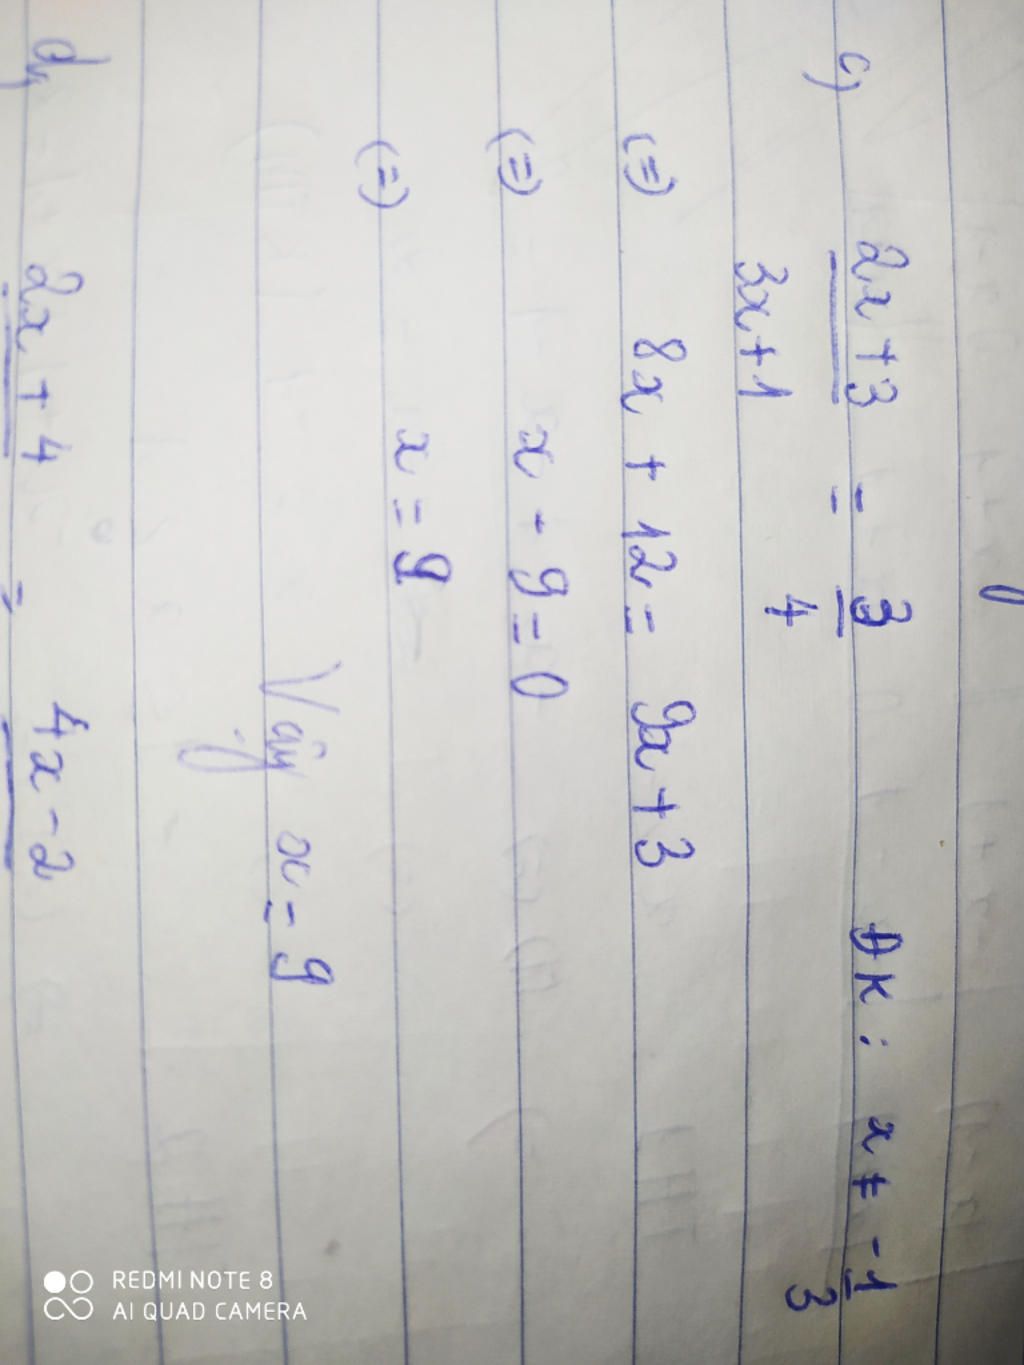 c) 2x+3 = 3 ĐK: x ≠ -1
3x+1 4 3
(=) 8x + 12 = 9x + 3
(=) x - 9 = 0
(=) x = 9
Vậy x = 9
d, 2x + 4 = 4x - 2
REDMI NOTE 8
AI QUAD CAMERA